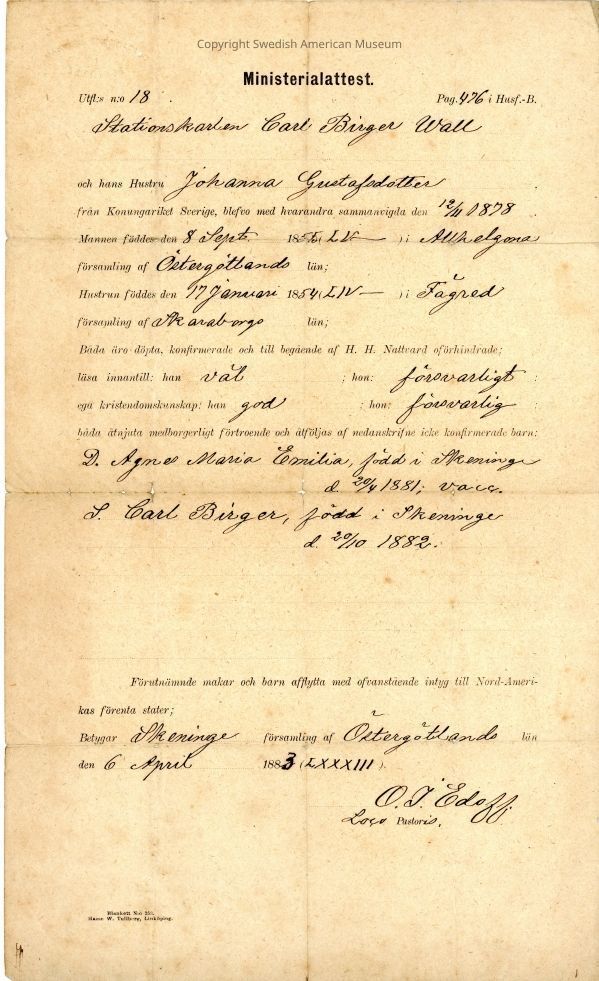 Copyright Swedish American Museum
Ministerialattest.
Utfl:s n:o 18. Pag. 476 i Husf.-B.
Stationskarlen Carl Birger Wall
och hans Hustru Johanna Gustafsdotter
från Konungariket Sverige, blefvo med hvarandra sammanvigda den 12/11 1878
Mannen föddes den 8 Sept. 1855 (LV ) i Allhelgona
församling af Östergötlands län;
Hustrun föddes den 17 Januari 1854 (LIV ) i Fägred
församling af Skaraborgs län;
Båda äro döpta, konfirmerade och till begående af H. H. Nattvard oförhindrade;
läsa innantill: han väl ; hon: försvarligt :
ega kristendomskunskap: han god ; hon: försvarlig
båda åtnjuta medborgerligt förtroende och åtföljas af nedanskrifne icke konfirmerade barn:
D. Agnes Maria Emilia, född i Skeninge
d. 20/4 1881; vacc.
S. Carl Birger, född i Skeninge
d. 20/10 1882.
Förutnämnde makar och barn afflytta med ofvanstående intyg till Nord-Ameri-
kas förenta stater;
Betygar Skeninge församling af Östergötlands län
den 6 April 1883 (LXXXIII).
O. J. Edoff
Loco Pastoris.
Blankett N:o 253.
W. Tullberg, Linköping.